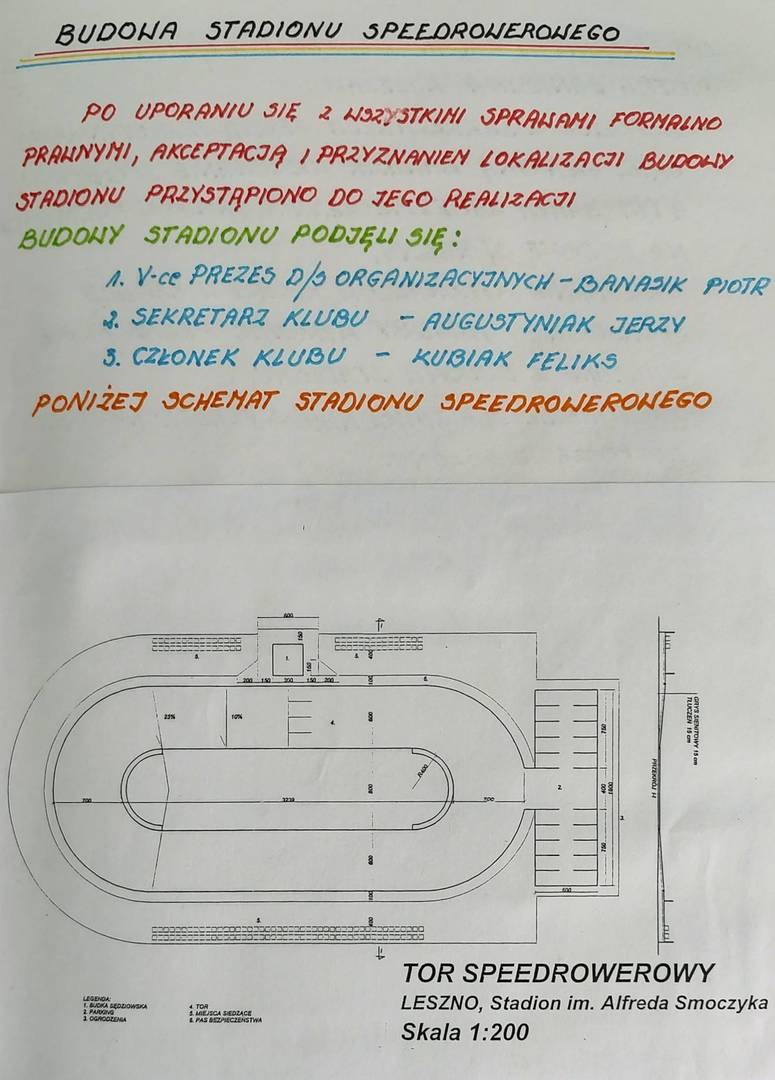 BUDOWA STADIONU SPEEDROWEROWEGO
PO UPORANIU SIĘ Z WSZYSTKIMI SPRAWAMI FORMALNO
PRAWNYMI, AKCEPTACJĄ I PRZYZNANIEM LOKALIZACJI BUDOWY
STADIONU PRZYSTĄPIONO DO JEGO REALIZACJI
BUDOWY STADIONU PODJĘLI SIĘ:
1. V-ce PREZES D/S ORGANIZACYJNYCH - BANASIK PIOTR
2. SEKRETARZ KLUBU - AUGUSTYNIAK JERZY
3. CZŁONEK KLUBU - KUBIAK FELIKS
PONIŻEJ SCHEMAT STADIONU SPEEDROWEROWEGO
600
150
1.
150
5.
5.
400
200 150 300 150 200
100
6.
25%
10%
4.
600
750
R400
700
3239
800
700
2.
400
1900
3.
600
750
100
600
5.
400
PRZEKRÓJ I-I
GRYS SJENITOWY 15 cm
TŁUCZEŃ 15 cm
TOR SPEEDROWEROWY
LESZNO, Stadion im. Alfreda Smoczyka
Skala 1:200
LEGENDA:
1. BUDKA SĘDZIOWSKA
2. PARKING
3. OGRODZENIA
4. TOR
5. MIEJSCA SIEDZĄCE
6. PAS BEZPIECZEŃSTWA